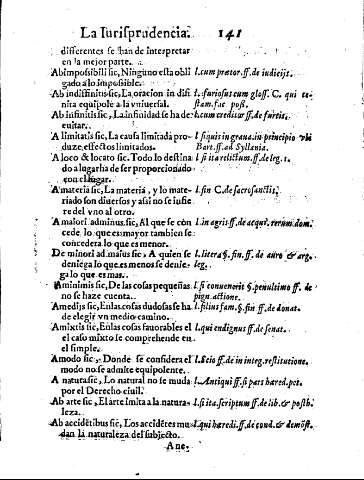 La Iurisprudencia. 141
differentes se han de interpretar
en la mejor parte.
Ab impossibili sic, Ninguno està obli l. cum prætor. ff. de iudicijs.
gado a lo impossible.
Ab indiffinitis sic, La oracion in difi l. furiosus cum gloss. C. qui te-
nita equipole a la vniuersal. stam. fac poss.
Ab infinitis sic, La infinidad se ha de l. cum creditor ff. de furtis.
euitar.
A limitatis sic, La causa limitada pro- l. si quis in graui. in principio vbi
duze effectos limitados. Bart. ff. ad Syllania.
A loco & locato sic. Todo lo destina l. si ita relictum. ff. de leg. 1.
do a lugar ha de ser proporcionado
con el lugar.
A materia sic, La materia, y lo mate- l. fin C. de sacrosanctis.
riado son diuersos y assi no se infie
re del vno al otro.
A maiori ad minus sic, Al que se con l. in agris ff. de acqui. rerum dom.
cede lo que es mayor tambien se
concedera lo que es menor.
De minori ad maius sic, A quien se l. litera §. fin. ff. de auro & arg.
deniega lo que es menos se denie- leg.
ga lo que es mas.
A minimis sic, De las cosas pequeñas l. si conuenerit §. penultimo ff. de
no se haze cuenta. pign. actione.
A medijs sic, En las cosas dudosas se ha l. filius fam. §. fin ff. de donat.
de elegir vn medio camino.
A mixtis sic, En las cosas fauorables el l. qui indignus ff. de senat.
el caso mixto se comprehende en
el simple.
A modo sic, Donde se considera el l. Scio ff. de in integ. restitutione.
modo no se admite equipolente.
A natura sic, Lo natural no se muda l. Antiqui ff. si pars hæred. pet.
por el Derecho ciuil.
Ab arte sic, El arte imita a la natura- l. si ita scriptum ff. de lib. & posth.
leza.
Ab accidētibus sic, Los accidētes mu l. qui hæredi. ff. de cond. & demōst.
dan la naturaleza del subjecto.
A ne-